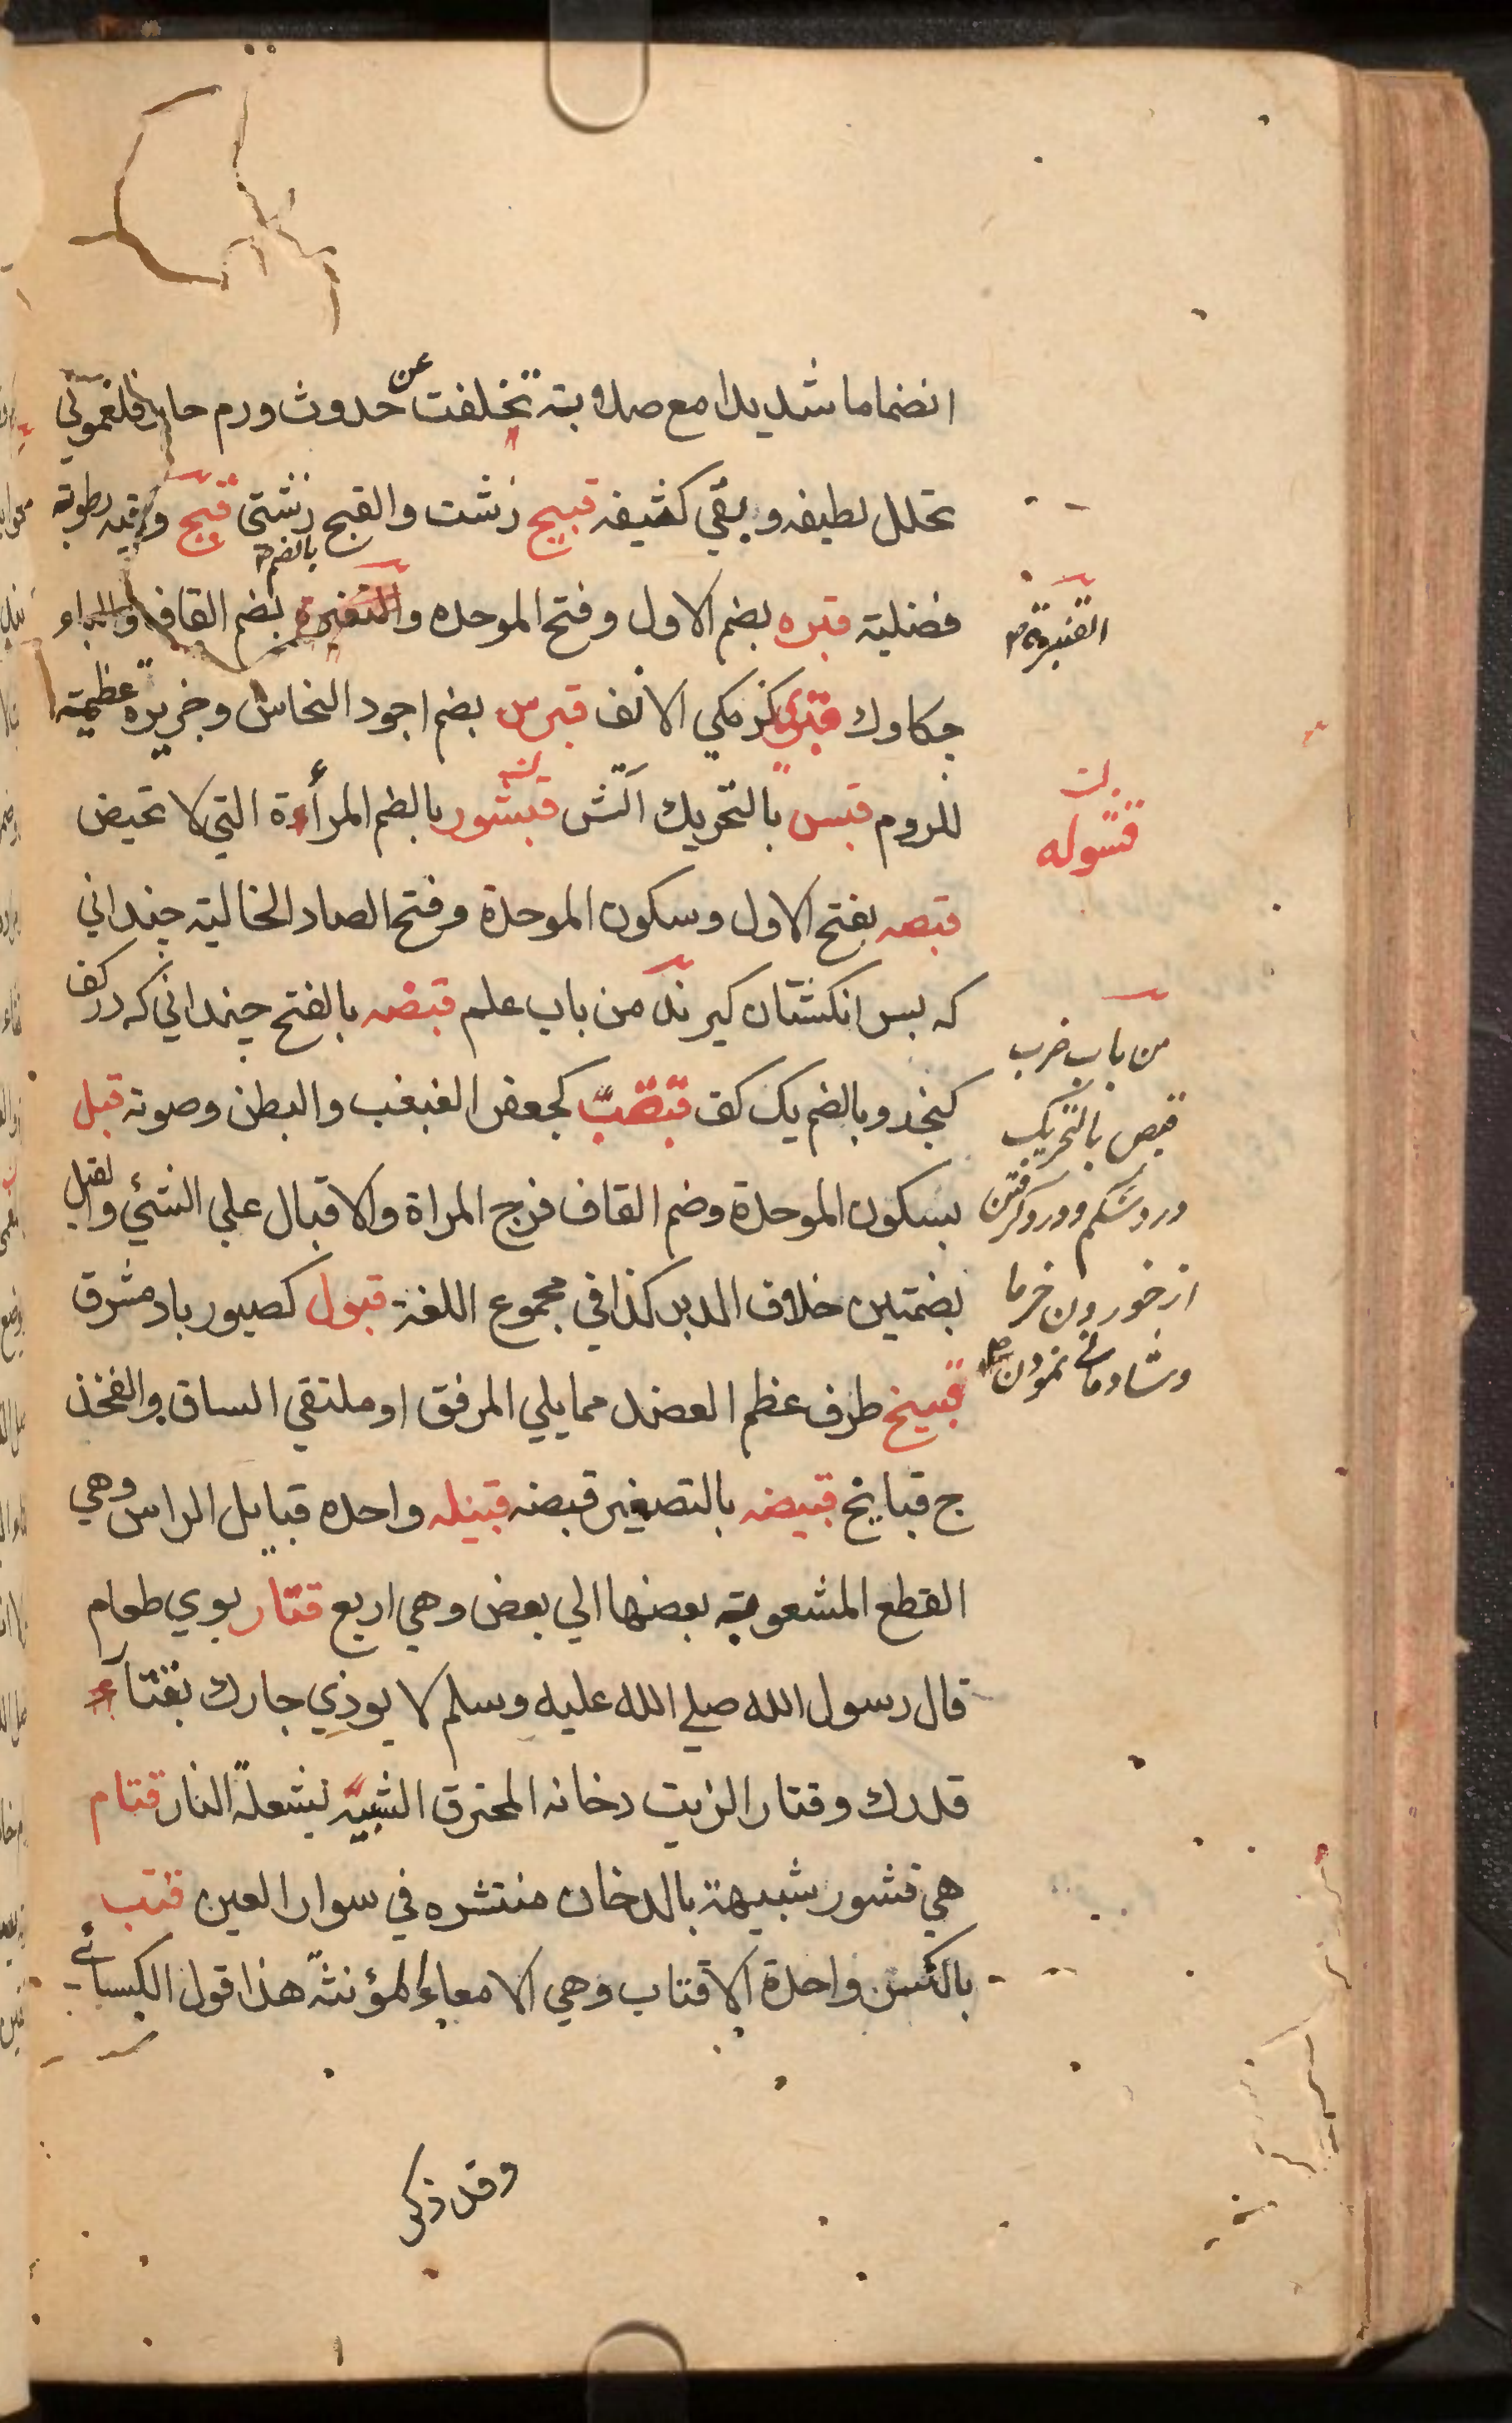 انضماما شديدا مع صلابة تخلفت عن حدوث ورم حار فلغموني
تحلل لطيفه وبقي كثيفه قبيح زشت والقبح زشتى قيح رطوبة
فضلية قبره بضم الاول وفتح الموحده بضم القاف والباء
بالضم
القنبرة
چكاوك كزمكي الانف قبرس بضم اجود النحاس وجزيرة عظيمة
للروم قبس بالتحريك آتش قبشور بالضم المرأة التي لا تحيض
قبصه بفتح الاول وسكون الموحدة وفتح الصاد الخالية چنداني
كه بسر انكشتان كيرند من باب علم قبضه بالفتح چنداني كه در كف
كنجد وبالضم يك كف قبقب كجعفر الغبغب والبطن وصوته قبل
بسكون الموحدة وضم القاف فرج المراة والاقبال علي الشئي والقبل
بضمتين خلاف الدبر كذا في مجموع اللغة قبول كصبور باد مشرق
قبيح طرف عظم العضد مما يلي المرفق او ملتقي الساق والفخذ
ج قبايح قبيضه بالتصغير قبضه قبيله واحده قبايل الراس وهي
القطع المشعوبة بعضها الي بعض وهي اربع قتار بوي طعام
قال رسول الله صلي الله عليه وسلم لا يوذي جارك بقتار
قدرك وقتار الزيت دخانه المحترق الشبيه بشعلة النار قتام
هي قشور شبيهة بالدخان منتشره في سواد العين قتب
بالكسر واحدة الاقتاب وهي الامعاء المؤنثة هذا قول الكسائي
وقد ذكر
من باب ضرب
قبص بالتحريك
درد شكم و درد كرفتن
از خوردن خرما
وشادماني نمودن